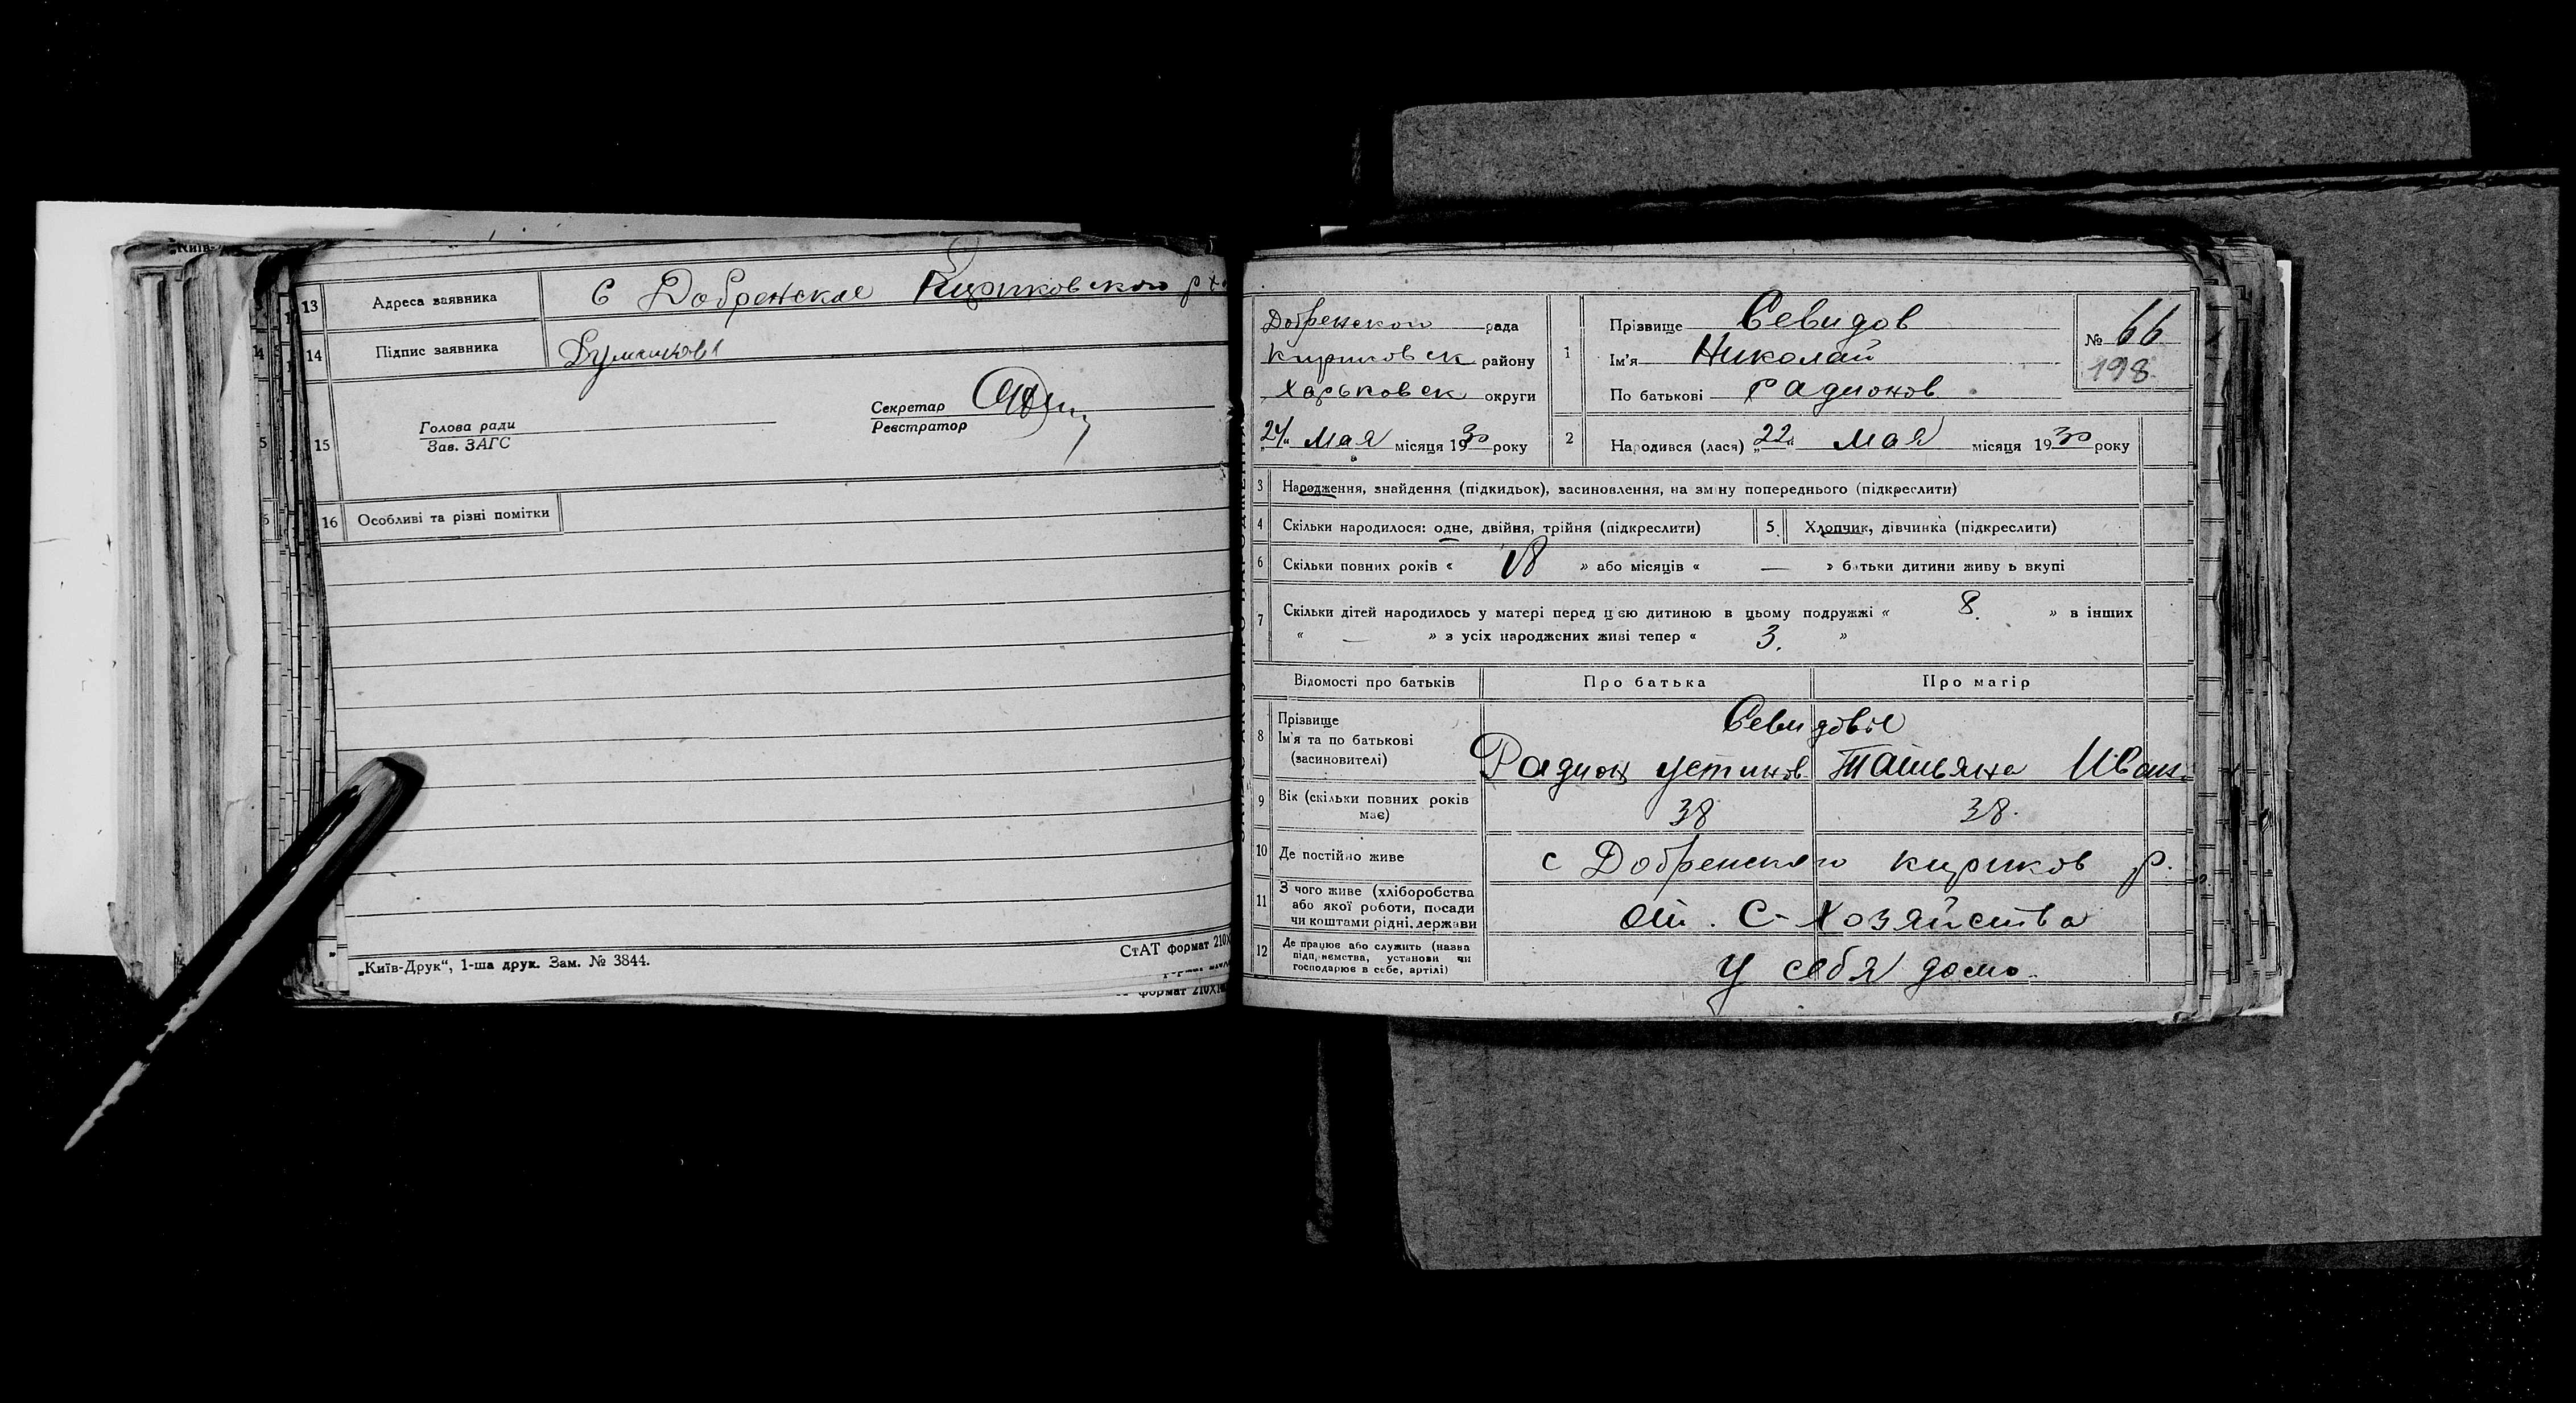 13 Адреса заявника с Добренское Кириковского р
14 Підпис заявника
15 Голова ради
Зав. ЗАГС
Секретар
Реєстратор
16 Особливі та різні помітки
„Київ-Друк“, 1-ша друк. Зам. № 3844.
СтАТ формат 210Х
Добренской рада
Кириковск району
Харьковск округи
„24“ Мая місяця 1930 року
1 Прізвище Севидов
Ім'я Николай
По батькові Радионов
№ 66
198
2 Народився (лася) „22“ Мая місяця 1930 року
3 Народження, знайдення (підкидьок), засиновлення, на зміну попереднього (підкреслити)
4 Скільки народилося: одне, двійня, трійня (підкреслити) 5 Хлопчик, дівчинка (підкреслити)
6 Скільки повних років « 18 » або місяців « — » батьки дитини живуть вкупі
7 Скільки дітей народилось у матері перед цією дитиною в цьому подружжі « 8. » в інших
« — » з усіх народжених живі тепер « 3. »
Відомості про батьків Про батька Про матір
8 Прізвище
Ім'я та по батькові
(засиновителі)
Севидовы
Радион Устинов Татьяна Иван.
9 Вік (скільки повних років має) 38 38.
10 Де постійно живе с Добренского Кириков р.
11 З чого живе (хліборобства
або якої роботи, посади
чи коштами рідні, держави
от. С-Хозяйства
12 Де працює або служить (назва
підприємства, установи чи
господарює в себе, артілі)
у себя дома.